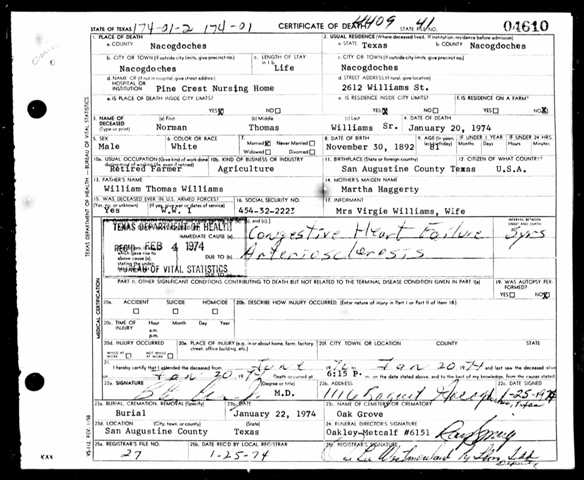 STATE OF TEXAS 174-01-2 174-01 CERTIFICATE OF DEATH 41 04610
1. PLACE OF DEATH
2. USUAL RESIDENCE (Where deceased lived. If institution, residence before admission)
a. COUNTY Nacogdoches
a. STATE Texas b. COUNTY Nacogdoches
b. CITY OR TOWN (If outside city limits, give precinct no.) c. LENGTH OF STAY
c. CITY OR TOWN (If outside city limits, give precinct no.)
Nacogdoches Life Nacogdoches
d. NAME OF (If not in hospital, give street address) HOSPITAL OR INSTITUTION
d. STREET ADDRESS (If rural, give location)
Pine Crest Nursing Home 2612 Williams St.
e. IS PLACE OF DEATH INSIDE CITY LIMITS? YES NO
e. IS RESIDENCE INSIDE CITY LIMITS? YES NO
f. IS RESIDENCE ON A FARM? YES NO
3. NAME OF DECEASED (Type or print) (a) First (b) Middle (c) Last 4. DATE OF DEATH
Norman Thomas Williams Sr. January 20, 1974
5. SEX 6. COLOR OR RACE 7. Married Never Married Widowed Divorced 8. DATE OF BIRTH 9. AGE IF UNDER 1 YEAR IF UNDER 24 HRS.
Male White November 30, 1892 81
10a. USUAL OCCUPATION (Give kind of work done 10b. KIND OF BUSINESS OR INDUSTRY 11. BIRTHPLACE (State or foreign country) 12. CITIZEN OF WHAT COUNTRY?
Retired Farmer Agriculture San Augustine County Texas U.S.A.
13. FATHER'S NAME 14. MOTHER'S MAIDEN NAME
William Thomas Williams Martha Haggerty
15. WAS DECEASED EVER IN U.S. ARMED FORCES? 16. SOCIAL SECURITY NO. 17. INFORMANT
Yes W.W. I 454-32-2223 Mrs Virgie Williams, Wife
TEXAS DEPARTMENT OF HEALTH
IMMEDIATE CAUSE (a) Congestive Heart Failure 3yrs
REC'D FEB 4 1974
DUE TO (b) Arteriosclerosis
BUREAU OF VITAL STATISTICS
PART II. OTHER SIGNIFICANT CONDITIONS CONTRIBUTING TO DEATH BUT NOT RELATED TO THE TERMINAL DISEASE CONDITION GIVEN IN PART I(a) 19. WAS AUTOPSY PERFORMED?
YES NO
20a. ACCIDENT SUICIDE HOMICIDE 20b. DESCRIBE HOW INJURY OCCURRED. (Enter nature of injury in Part I or Part II of Item 18.)
20c. TIME OF INJURY Hour Month Day Year
a.m.
p.m.
20d. INJURY OCCURRED 20e. PLACE OF INJURY (e.g. in or about home, farm, factory, street, office building, etc.) 20f. CITY, TOWN, OR LOCATION COUNTY STATE
WHILE AT WORK NOT WHILE AT WORK
I hereby certify that I attended the deceased from Jan 20 1974 and last saw the deceased alive
Jan 20 1974 Death occurred at 6:15 P. m. on the date stated above, and to the best of my knowledge, from the causes stated
22a. SIGNATURE (Degree or title) 22b. ADDRESS 22c. DATE SIGNED
M.D. 1-25-1974
23a. BURIAL, CREMATION, REMOVAL (Specify) 23b. DATE 23c. NAME OF CEMETERY OR CREMATORY
Burial January 22, 1974 Oak Grove
23d. LOCATION (City, town, or county) (State) 24. FUNERAL DIRECTOR'S SIGNATURE
San Augustine County Texas Oakley-Metcalf #6151
25a. REGISTRAR'S FILE NO. 25b. DATE REC'D BY LOCAL REGISTRAR 25c. REGISTRAR'S SIGNATURE
27 1-25-74
Deputy
TEXAS DEPARTMENT OF HEALTH - BUREAU OF VITAL STATISTICS
MEDICAL CERTIFICATION